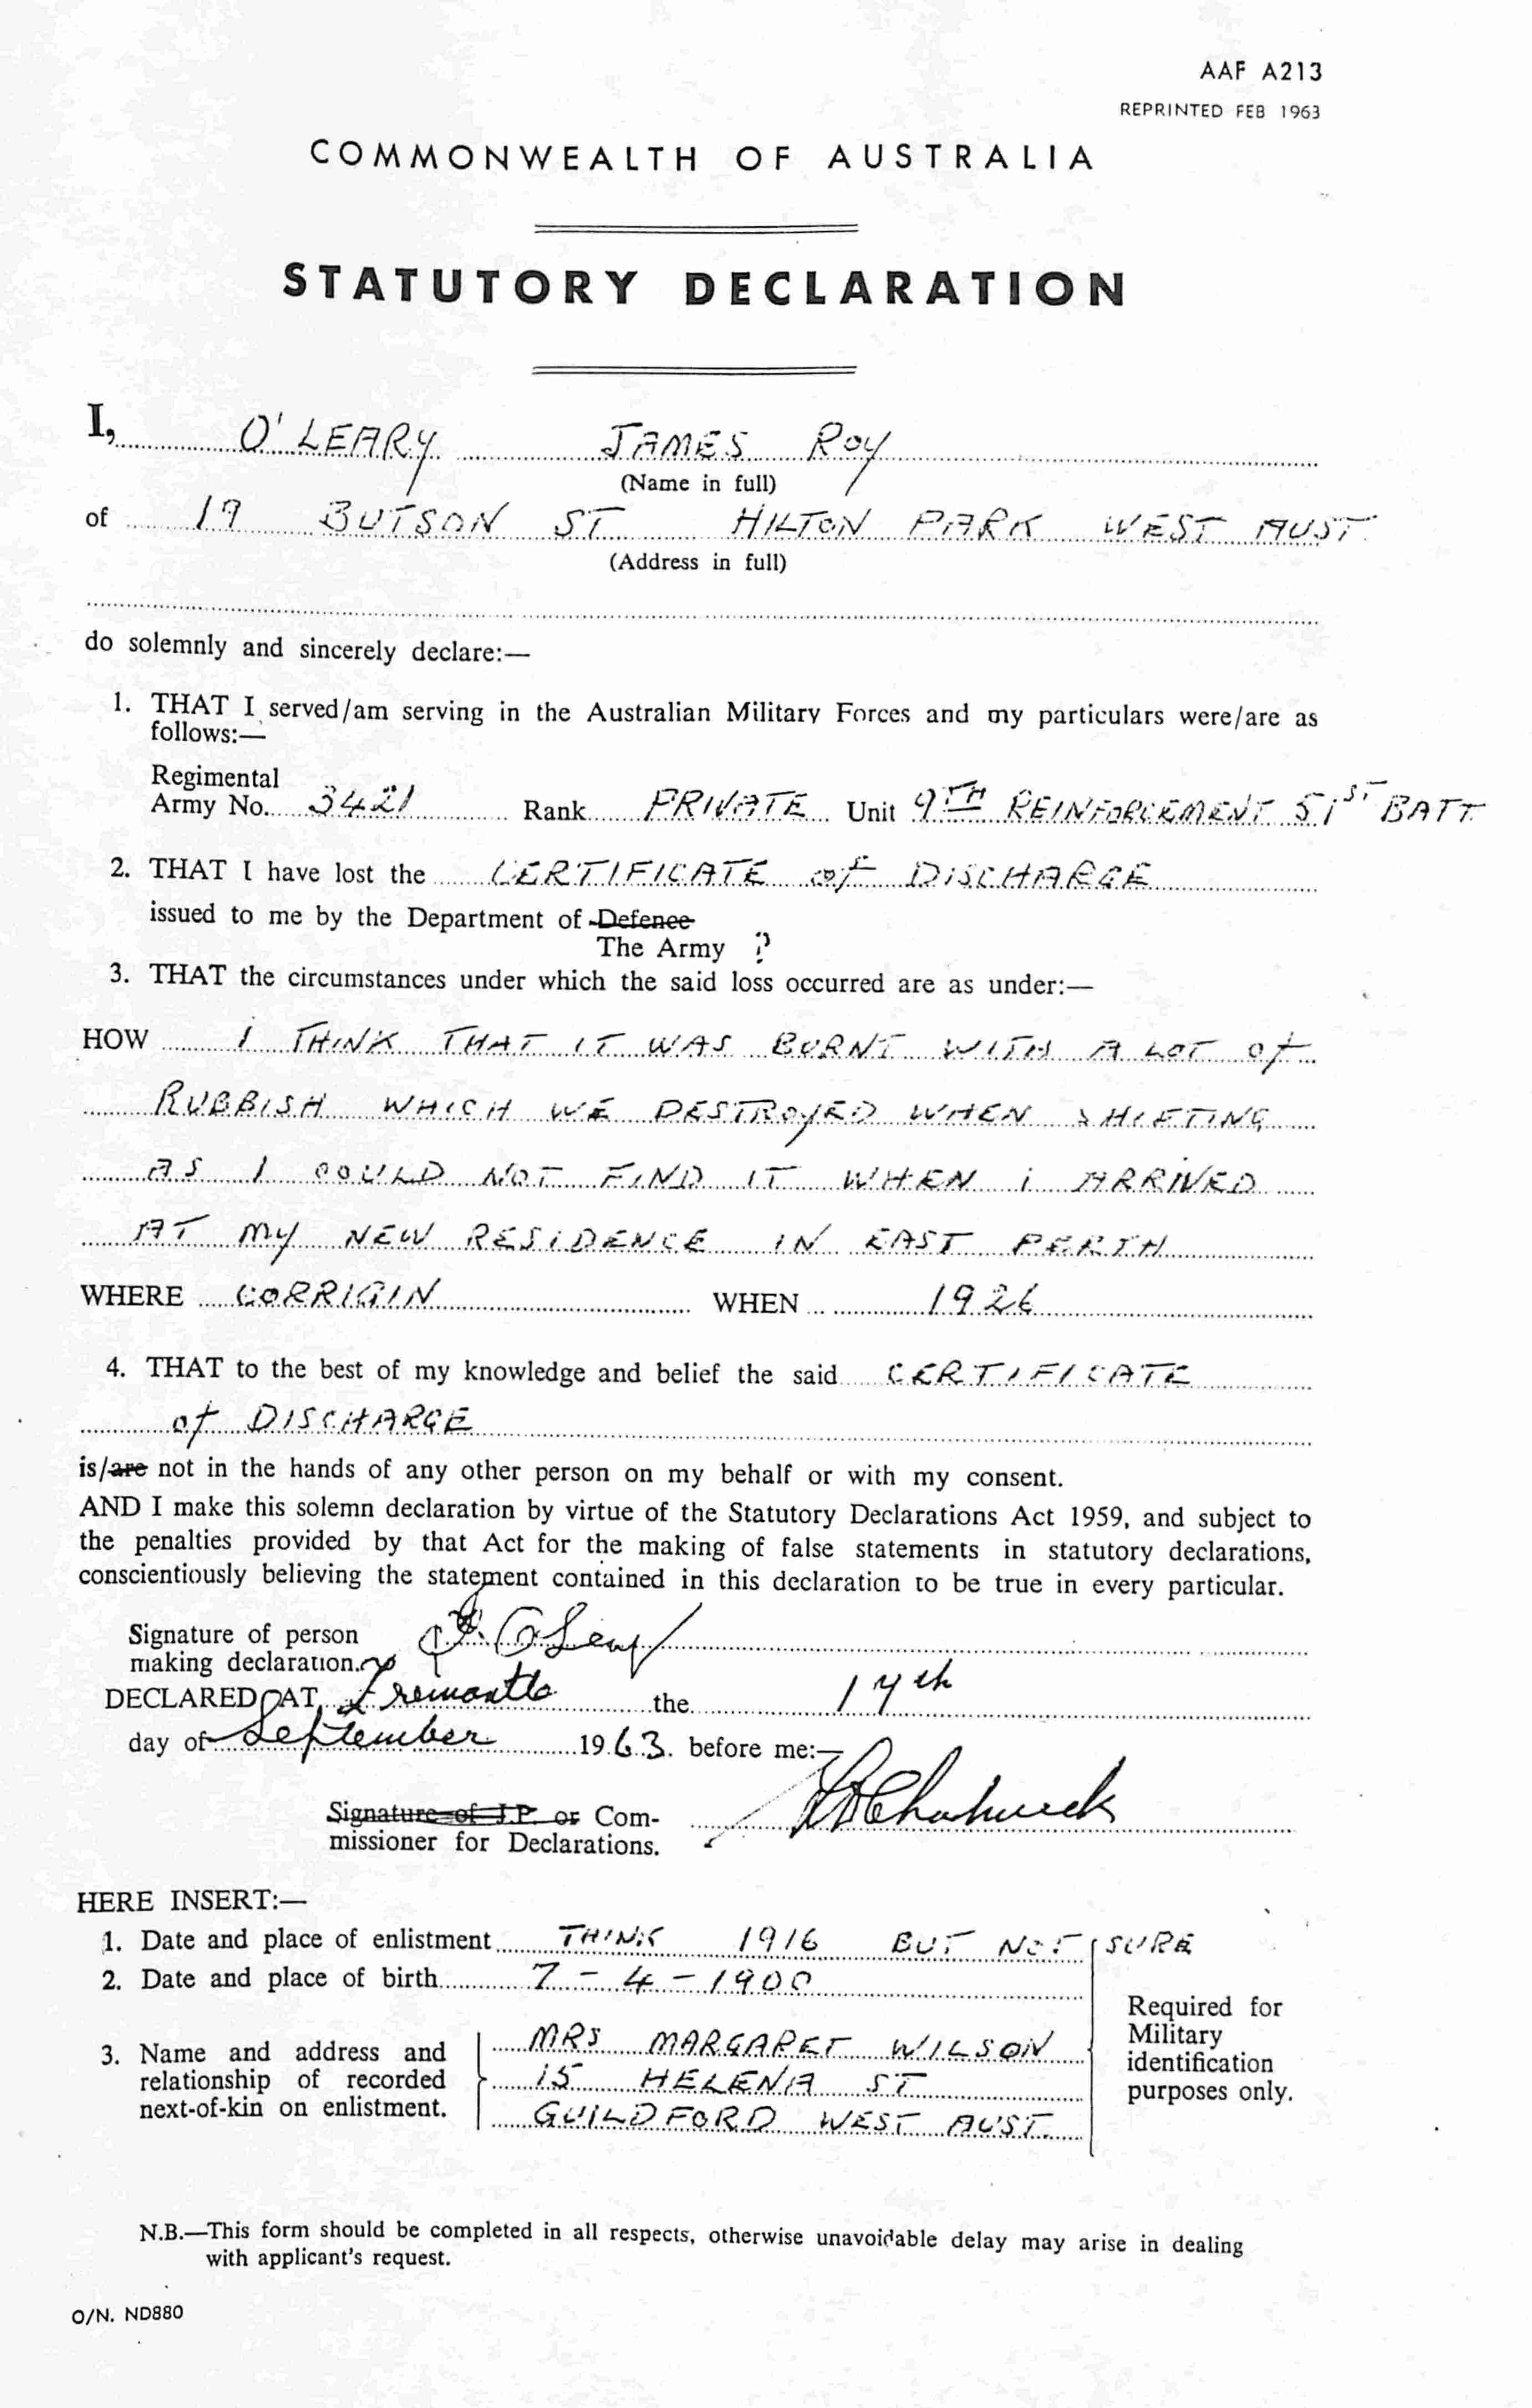 AAF A213
REPRINTED FEB 1963
COMMONWEALTH OF AUSTRALIA
STATUTORY DECLARATION
I, O'LEARY JAMES ROY
(Name in full)
of 19 BUTSON ST HILTON PARK WEST AUST.
(Address in full)
do solemnly and sincerely declare:—
1. THAT I served/am serving in the Australian Military Forces and my particulars were/are as
follows:—
Regimental
Army No. 3421 Rank PRIVATE Unit 9TH REINFORCEMENT 51ST BATT
2. THAT I have lost the CERTIFICATE of DISCHARGE
issued to me by the Department of Defence
The Army ?
3. THAT the circumstances under which the said loss occurred are as under:—
HOW I THINK THAT IT WAS BURNT WITH A LOT of
RUBBISH WHICH WE DESTROYED WHEN SHIFTING
AS I COULD NOT FIND IT WHEN i ARRIVED
AT MY NEW RESIDENCE IN EAST PERTH
WHERE CORRIGIN WHEN 1926
4. THAT to the best of my knowledge and belief the said CERTIFICATE
of DISCHARGE
is/are not in the hands of any other person on my behalf or with my consent.
AND I make this solemn declaration by virtue of the Statutory Declarations Act 1959, and subject to
the penalties provided by that Act for the making of false statements in statutory declarations,
conscientiously believing the statement contained in this declaration to be true in every particular.
Signature of person
making declaration. J. R. O'Leary
DECLARED AT Fremantle the 17th
day of September 1963. before me:—
Signature of J.P. or Com-
missioner for Declarations.
HERE INSERT:—
1. Date and place of enlistment THINK 1916 BUT NOT SURE
2. Date and place of birth 7-4-1900
Required for
Military
identification
purposes only.
3. Name and address and MRS MARGARET WILSON
relationship of recorded 15 HELENA ST
next-of-kin on enlistment. GUILDFORD WEST AUST.
N.B.—This form should be completed in all respects, otherwise unavoidable delay may arise in dealing
with applicant's request.
O/N. ND880